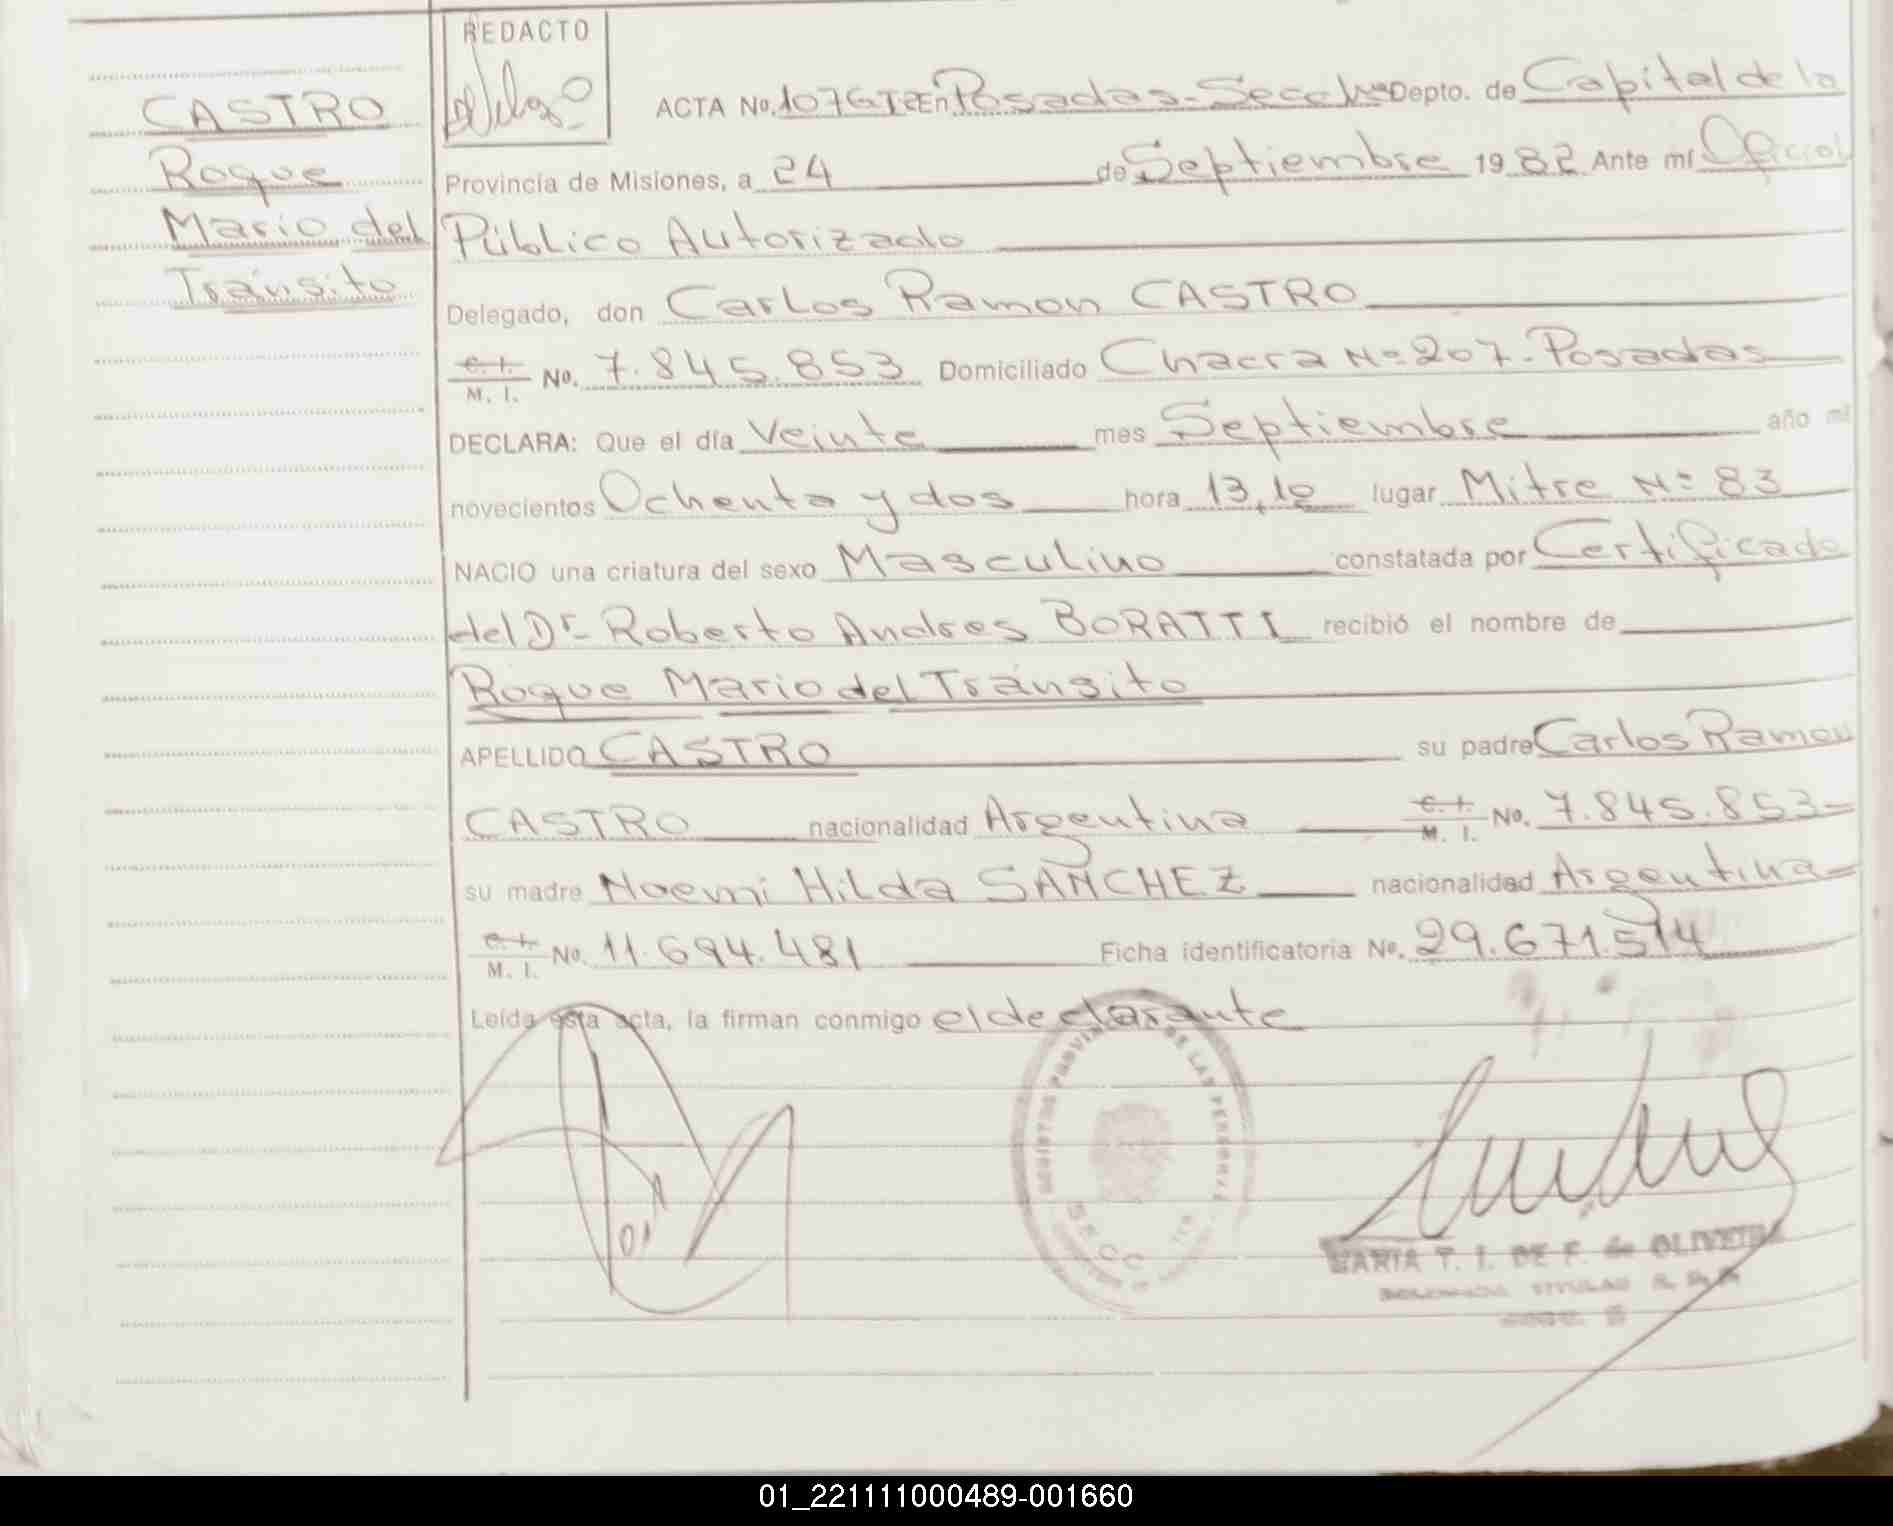 REDACTO
CASTRO
Roque
Mario del
Tránsito
ACTA No. 1076 En Posadas-Secc. Depto. de Capital de la
Provincia de Misiones, a 24 de Septiembre 1982 Ante mí Oficial
Público Autorizado
Delegado, don Carlos Ramon CASTRO
C. I. M. I. No. 7.845.853 Domiciliado Chacra Nº 207-Posadas
DECLARA: Que el día Veinte mes Septiembre año mil
novecientos Ochenta y dos hora 13,10 lugar Mitre Nº 83
NACIO una criatura del sexo Masculino constatada por Certificado
del Dr. Roberto Andres BORATTI recibió el nombre de
Roque Mario del Tránsito
APELLIDO CASTRO su padre Carlos Ramon
CASTRO nacionalidad Argentina C. I. M. I. No. 7.845.853-
su madre Noemi Hilda SANCHEZ nacionalidad Argentina-
C. I. M. I. No. 11.694.481 Ficha identificatoria No. 29.671.514
Leída esta acta, la firman conmigo el declarante
DE LAS PERSONAS
SECC
MARIA T. I. DE F. de OLIVEIRA
01_221111000489-001660